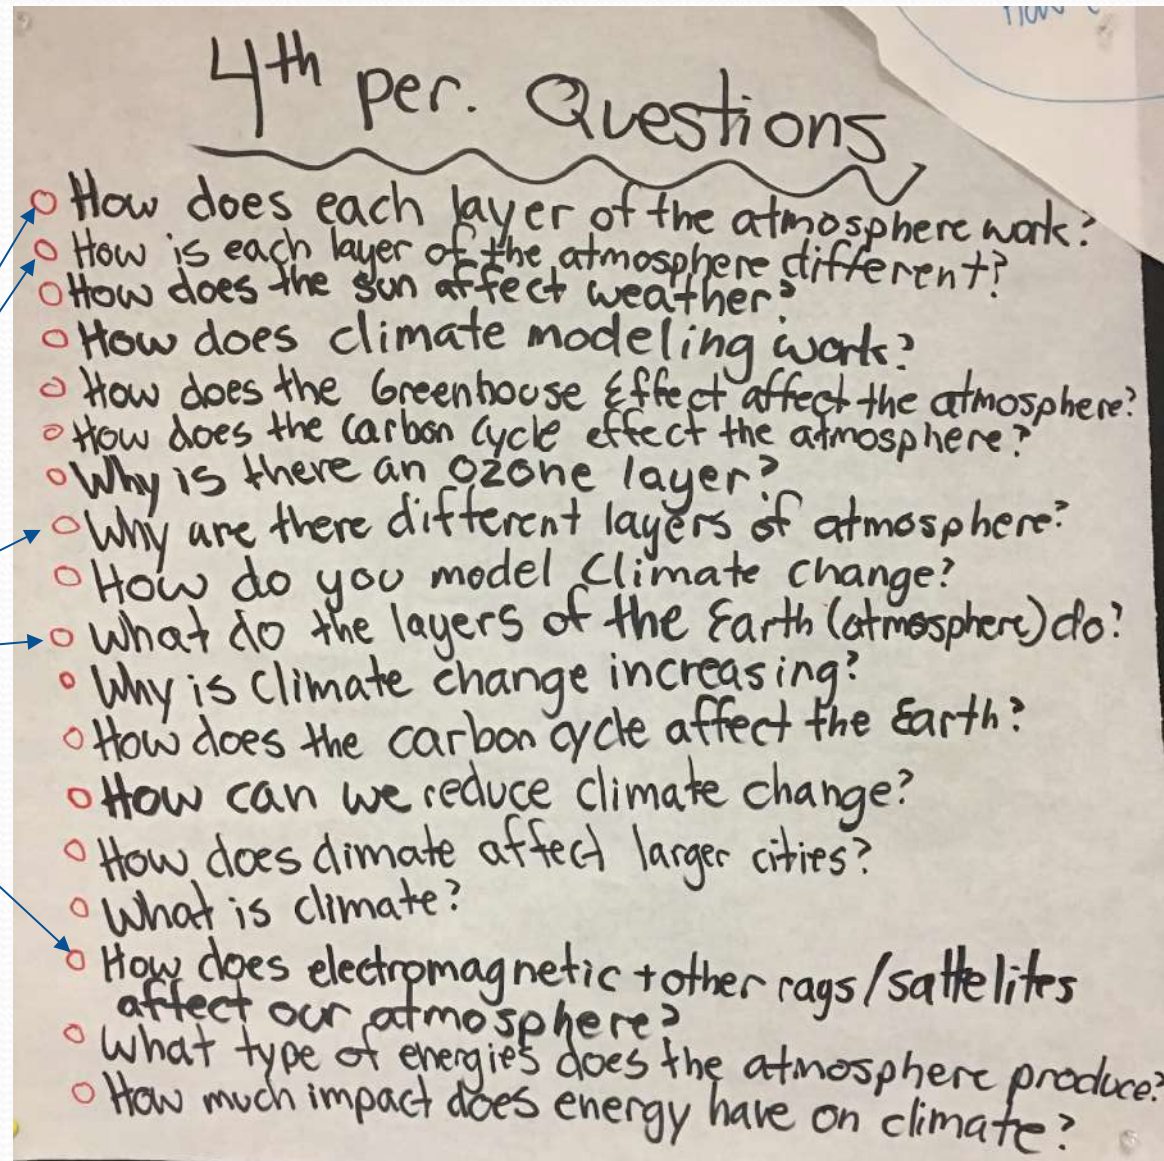 4th per. Questions
How does each layer of the atmosphere work?
How is each layer of the atmosphere different?
How does the sun affect weather?
How does climate modeling work?
How does the Greenhouse Effect affect the atmosphere?
How does the carbon cycle effect the atmosphere?
Why is there an ozone layer?
Why are there different layers of atmosphere?
How do you model Climate change?
What do the layers of the Earth (atmosphere) do?
Why is Climate change increasing?
How does the carbon cycle affect the Earth?
How can we reduce climate change?
How does climate affect larger cities?
What is climate?
How does electromagnetic + other rags/sattelites
affect our atmosphere?
What type of energies does the atmosphere produce?
How much impact does energy have on climate?